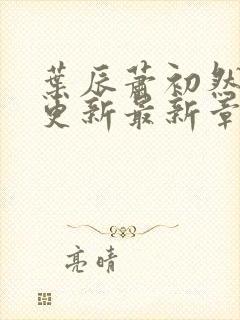 葉辰蕭初然
更新最新章
亮晴